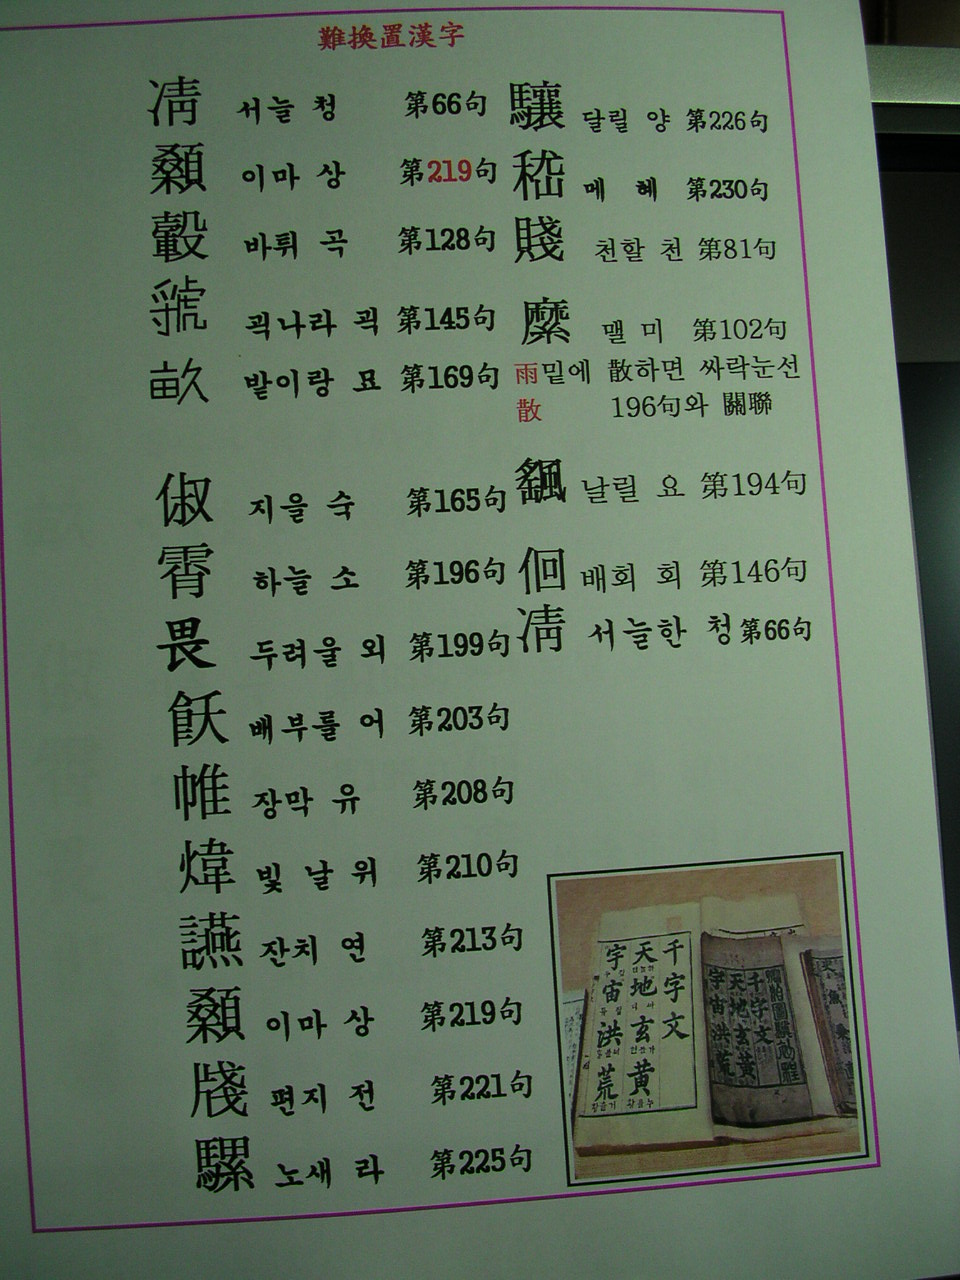 難換置漢字
凊 서늘 청 第66句
顙 이마 상 第219句
轂 바퀴 곡 第128句
虢 괵나라 괵 第145句
畝 밭이랑 묘 第169句
俶 지을 숙 第165句
霄 하늘 소 第196句
畏 두려울 외 第199句
飫 배부를 어 第203句
帷 장막 유 第208句
煒 빛 날 위 第210句
讌 잔치 연 第213句
顙 이마 상 第219句
牋 편지 전 第221句
騾 노새 라 第225句
驤 달릴 양 第226句
嵇 메 혜 第230句
賤 천할 천 第81句
縻 맬 미 第102句
雨밑에 散하면 싸락눈선
散 196句와 關聯
飖 날릴 요 第194句
佪 배회 회 第146句
凊 서늘한 청 第66句
千字文
天地玄黃
宇宙洪荒
千字文
天地玄黃
宇宙洪荒